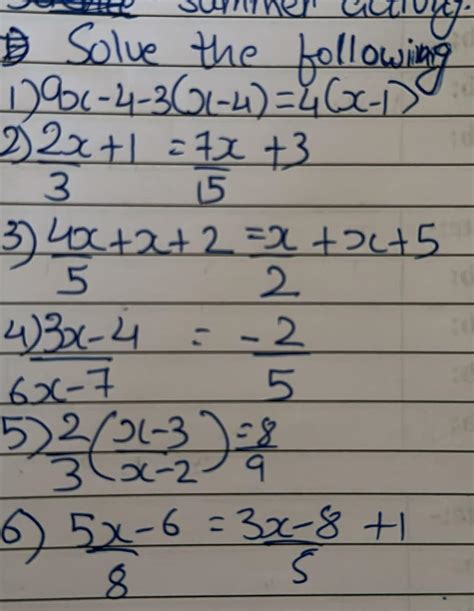 summer activity
Solve the following
1) 9x-4-3(x-4)=4(x-1)
2) 2x/3 + 1 = 7x/15 + 3
3) 4x/5 + x + 2 = x/2 + x + 5
4) 3x-4/6x-7 = -2/5
5) 2/3 (x-3/x-2) = 8/9
6) 5x-6/8 = 3x-8/5 + 1